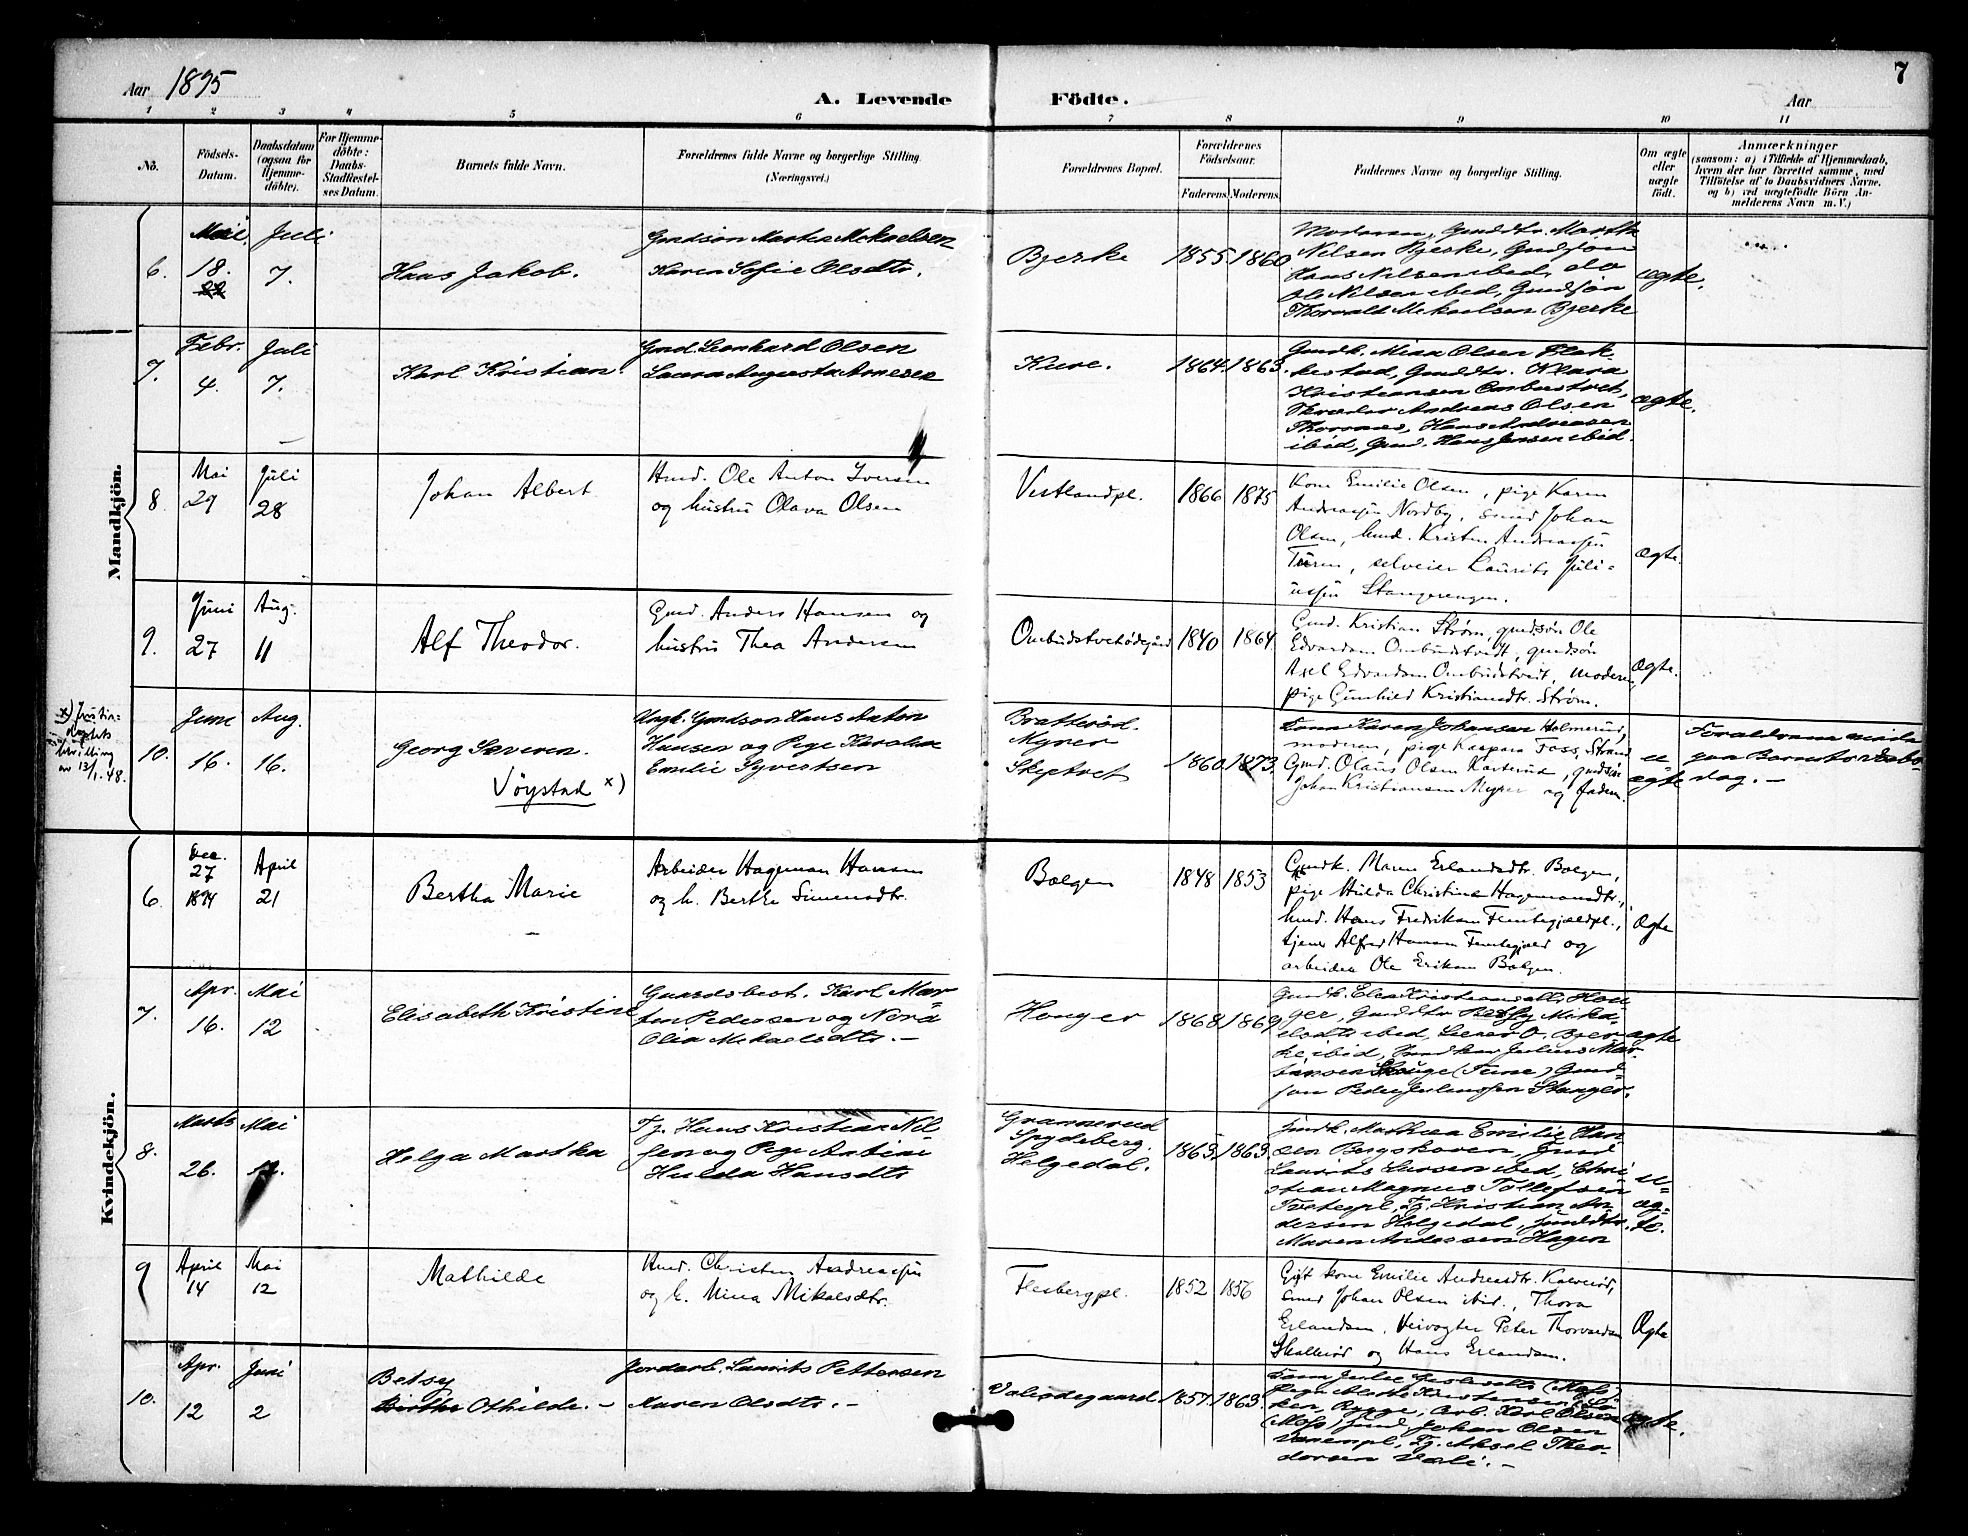 Aar 1895
A. Levende Födte.
Aar
7
1 2 3 4 5 6 7 8 9 10 11
No.
Födsels-
Datum.
Daabsdatum
(ogsaa for
Hjemme-
döbte).
For Hjemme-
döbte:
Daabs-
Stadfæstel-
ses Datum.
Barnets fulde Navn.
Forældrenes fulde Navne og borgerlige Stilling.
(Næringsvei.)
Forældrenes Bopæl.
Forældrenes
Födselsaar.
Faderens. Moderens.
Faddernes Navne og borgerlige Stilling.
Om ægte
eller
uægte
födt.
Anmærkninger
(saasom: a) i Tilfælde af Hjemmedaab,
hvem der har forrettet samme, med
Tilföielse af to Daabsvidners Navne,
og b) ved uægtefödte Börn An-
melderens Navn m. V.)
Mandkjön.
6.
Mai
18.
22
Juli
7.
Hans Jakob.
Gmdsøn Martin Mekaelsen
Karen Sofie Olsdtr.
Bjerke
1855
1860
Moderen, Gmdtr. Marthe
Nilsen Bjerke, Gmdsøn
Hans Nilsen ibid, do
Ole Nilsen ibid, Gmdsøn
Thorvald Mekaelsen Bjerke
ægte.
7.
Febr.
4.
Juli
7.
Karl Kristian.
Gmd. Leonhard Olsen
Laura Augusta Arnesen
Kure.
1864
1863.
Gmdk. Mina Olsen Flak-
kestad, Gmddtr. Klara
Kristiansen Ombustvet,
Skræder Andreas Olsen
Thorsnæs, Hans Andreasen
ibid, Gmd. Hans Jensen ibid.
ægte.
8
Mai
29
Juli
28
Johan Albert
Hmd. Ole Anton Iversen
og hustru Olava Olsen
Vestlandpl.
1866
1875
Kone Emilie Olsen, pige Karen
Andreasen Nordby, smed Johan
Olsen, hmd. Kristen Andreassen
selveier Laurits Juli-
ussen Stangerengen.
Ægte.
9.
Juni
27
Aug.
11
Alf Theodor.
Gmd. Anders Hansen og
hustru Thea Andersen
Ombudstvetødegård
1840
1864
Gmd. Kristian Strøm, gmdsøn Ole
Edvardsen Ombudstvedt, gmdsøn
Axel Edvardsen Ombudstveit, moderen,
pige Gunhild Kristiansdtr. Strøm.
Ægte.
x) Justis-
bevilling
av 13/1.48.
10.
Juni
16.
Aug.
16.
Georg Severin.
Vøystad x)
Ungk. Gmdsøn Hans Anton
Hansen og Pige Karoline
Emilie Syvertsen
Bratterød.
Myrer
Skiptvet
1860
1873.
Kone Karen Johansen Holmerud,
moderen, pige Kaspara Foss, Strand
Gmd. Olaus Olsen Karterud, gmdsøn
Johan Kristiansen Myrer og faderen.
u-
ægte
Forældrene
paa Barnets Daabs-
dag. -
Kvindekjön.
6.
Dec.
27
1894
April
21
Bertha Marie
Arbeider Hageman Hansen
og h. Berthe Simensdtr.
Bolgen
1848
1853
Gmdk. Maren Erlandsdtr. Bolgen,
pige Hulda Christine Hagemansdtr.,
hmd. Hans Fredriksen Femtegjeldpl.,
tjener Alfred Hansen Femtegjeld og
arbeider Ole Eriksen Bolgen.
Ægte
7.
Apr.
16.
Mai
12
Elisabeth Kristine
Gaardsbest. Karl Mar-
tin Pedersen og Nora
Olia Mekaelsdtr. -
Honger
1868
1869
Gmdk. Elen Kristiansdtr. Hon-
ger, Gmddtr. Betsy Mika-
elsdtr ibid, Lærer O. Bjer-
ke ibid, Gmdkar Julius Mar-
tinsen Skouge (Tune) Gmd-
søn Peder Juliussen Stanger.
ægte
8.
Marts
26.
Mai
12.
Helga Martha
Tj. Hans Kristian Nil-
sen og Pige Antine
Hulda Hansdtr
Grannerud
Spydeberg.
Helgedal.
1863.
1863.
Jmdk. Mathea Emilie Han-
sen Bergskoven, Jmd
Laurits Larsen ibid, Chri-
stian Magnus Tollefsen
Tvetepl, Tj. Kristian An-
dersen Helgedal, Jmddtr.
Maren Andersen Hagen
u-
æg-
te.
9
April
14
Mai
12
Mathilde
Hmd. Christen Andreassen
og h. Mina Mikalsdtr.
Flesbergpl.
1852
1856
Gift kone Emilie Andreasdtr. Kalverød,
smed Johan Olsen ibid., Thora
Erlandsen, Veivogter Peter Thorvardsen
Skallerød og Hans Erlandsen.
Ægte
10.
Apr.
12
Juni
2
Betsy
Othilde. -
Jordarb. Laurits Pettersen
Maren Olsdtr. -
Valerødegaard
1857.
1863.
Kone Julie (Moss)
Pige Alethe Kristensen
Rygge, Arb. Karl Olsen
(Moss) Jmd Johan Olsen
Tj. Aksel Theo-
dorsen Vaale. -
ægte.